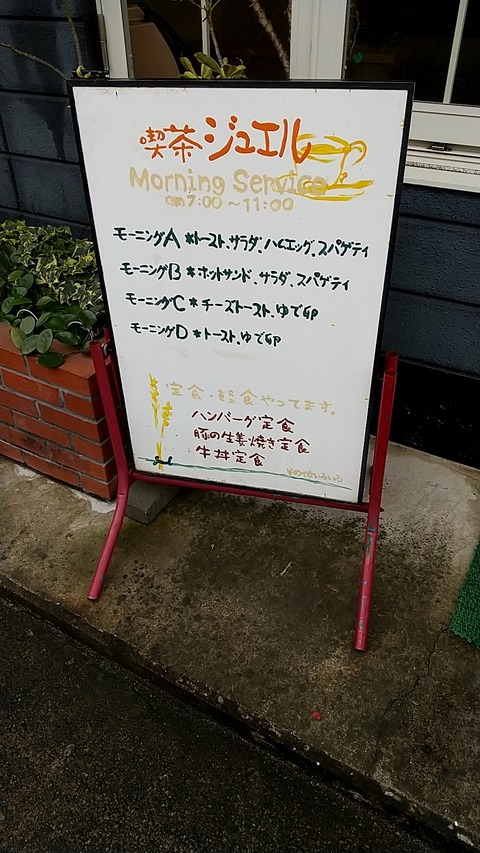 喫茶ジュエル
Morning Service
am7:00～11:00
モーニングA＊トースト、サラダ、ハムエッグ、スパゲティ
モーニングB＊ホットサンド、サラダ、スパゲティ
モーニングC＊チーズトースト、ゆで卵
モーニングD＊トースト、ゆで卵
定食・軽食やってます。
ハンバーグ定食
豚の生姜焼き定食
牛丼定食
その他いろいろ